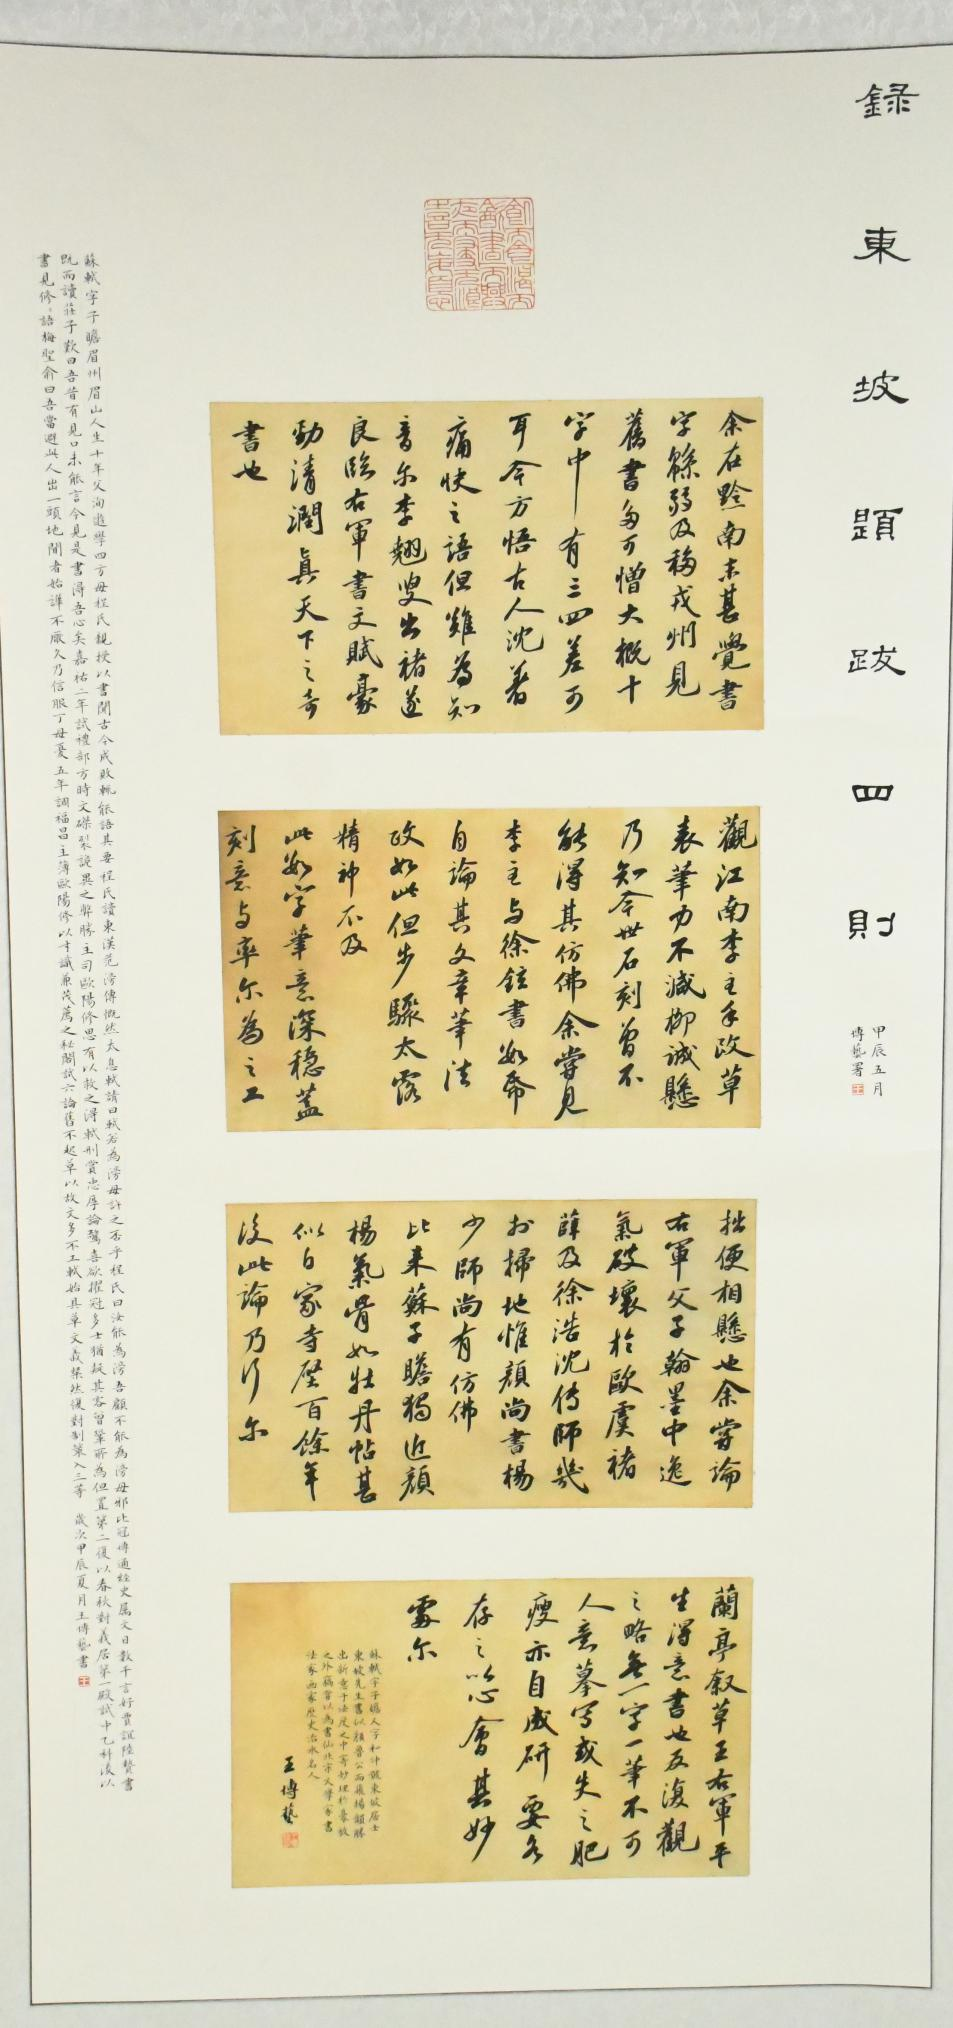 錄東坡題跋四則
甲辰五月
傅藝署
余在黔南未甚覺書
字緜弱及移戎州見
舊書多可憎大概十
字中有三四差可
耳今方悟古人沈著
痛快之語但難為知
音尓李翹叟出褚遂
良臨右軍書文賦豪
勁清潤真天下之奇
書也
觀江南李主手改草
表筆力不減柳誠懸
乃知今世石刻曾不
能得其仿佛余嘗見
李主与徐鉉書數紙
自論其文章筆法
政如此但步驟太露
精神不及
此數字筆意深穩蓋
刻意与率尓為之工
拙便相懸也余嘗論
右軍父子翰墨中逸
氣破壞於歐虞褚
薛及徐浩沈傳師幾
於掃地惟顏尚書楊
少師尚有仿佛
比來蘇子瞻獨近顏
楊氣骨如牡丹帖甚
似白家寺壁百餘年
後此論乃行尓
蘭亭叙草王右軍平
生得意書也反復觀
之略無一字一筆不可
人意摹寫或失之肥
瘦亦自成研要各
存之以心會其妙
處尓
蘇軾字子瞻又字和仲號東坡居士
東坡先生書似顏魯公而飛揚韻勝
出新意于法度之中寄妙理於豪放
之外稿嘗以為書仙北宋文學家書
法家畫家歷史治水名人
王傅藝
蘇軾字子瞻眉州眉山人生十年父洵遊學四方母程氏親授以書聞古今成敗輒能語其要程氏讀東漢范滂傳慨然太息軾請曰軾若為滂母許之否乎程氏曰汝能為滂吾顧不能為滂母邪比冠博通經史屬文日數千言好賈誼陸贄書
既而讀莊子歎曰吾昔有見口未能言今見是書得吾心矣嘉祐二年試禮部方時文磔裂詭異之弊勝主司歐陽修思有以救之得軾刑賞忠厚論驚喜欲擢冠多士猶疑其客曾鞏所為但置第二復以春秋對義居第一殿試中乙科後以
書見修修語梅聖俞曰吾當避此人出一頭地聞者始譁不厭久乃信服丁母憂五年調福昌主簿歐陽修以才識兼茂薦之秘閣試六論舊不起草以故文多不工軾始具草文義粲然復對制策入三等 歲次甲辰夏月王傅藝書